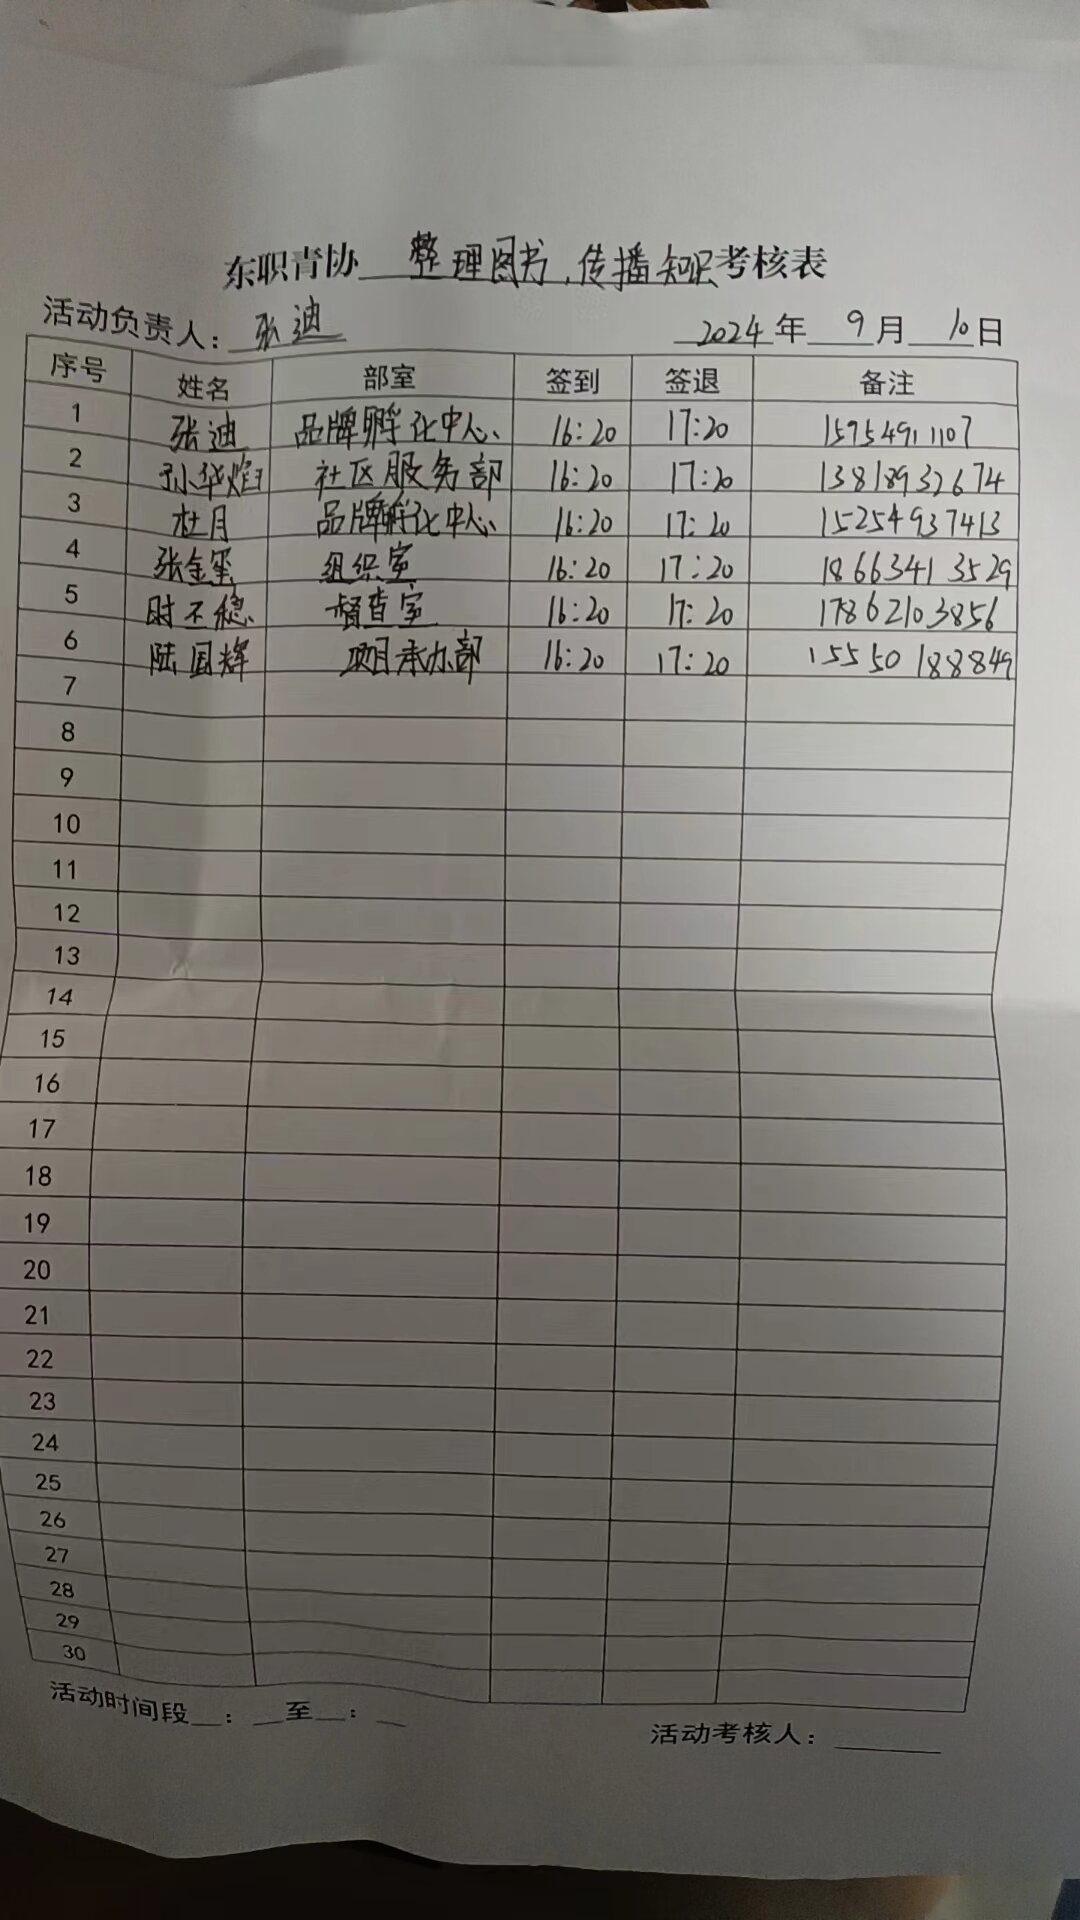 东职青协 整理图书,传播知识考核表
活动负责人: 张迪 2024 年 9 月 10 日
序号 姓名 部室 签到 签退 备注
1 张迪 品牌孵化中心 16:20 17:20 15754911107
2 孙华焰 社区服务部 16:20 17:20 13818932674
3 杜月 品牌孵化中心 16:20 17:20 15254937413
4 张金玺 组织室 16:20 17:20 18663413529
5 时不稳 督查室 16:20 17:20 17862103856
6 陆国辉 项目承办部 16:20 17:20 15550188849
7
8
9
10
11
12
13
14
15
16
17
18
19
20
21
22
23
24
25
26
27
28
29
30
活动时间段__:__至__:__ 活动考核人:______